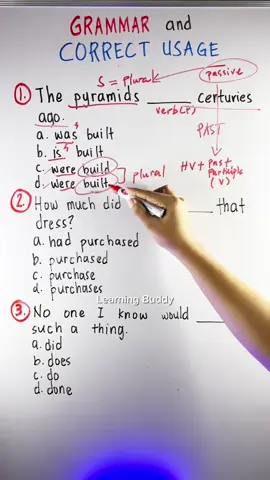 GRAMMAR and
CORRECT USAGE
S = plural
passive
1. The pyramids ____ centuries
verb (P)
ago.
PAST
a. was built
b. is built
c. were build
d. were built
plural
HV + Past
Participle
(V)
2. How much did ____ that
dress?
a. had purchased
b. purchased
c. purchase
d. purchases
Learning Buddy
3. No one I know would ____
such a thing.
a. did
b. does
c. do
d. done